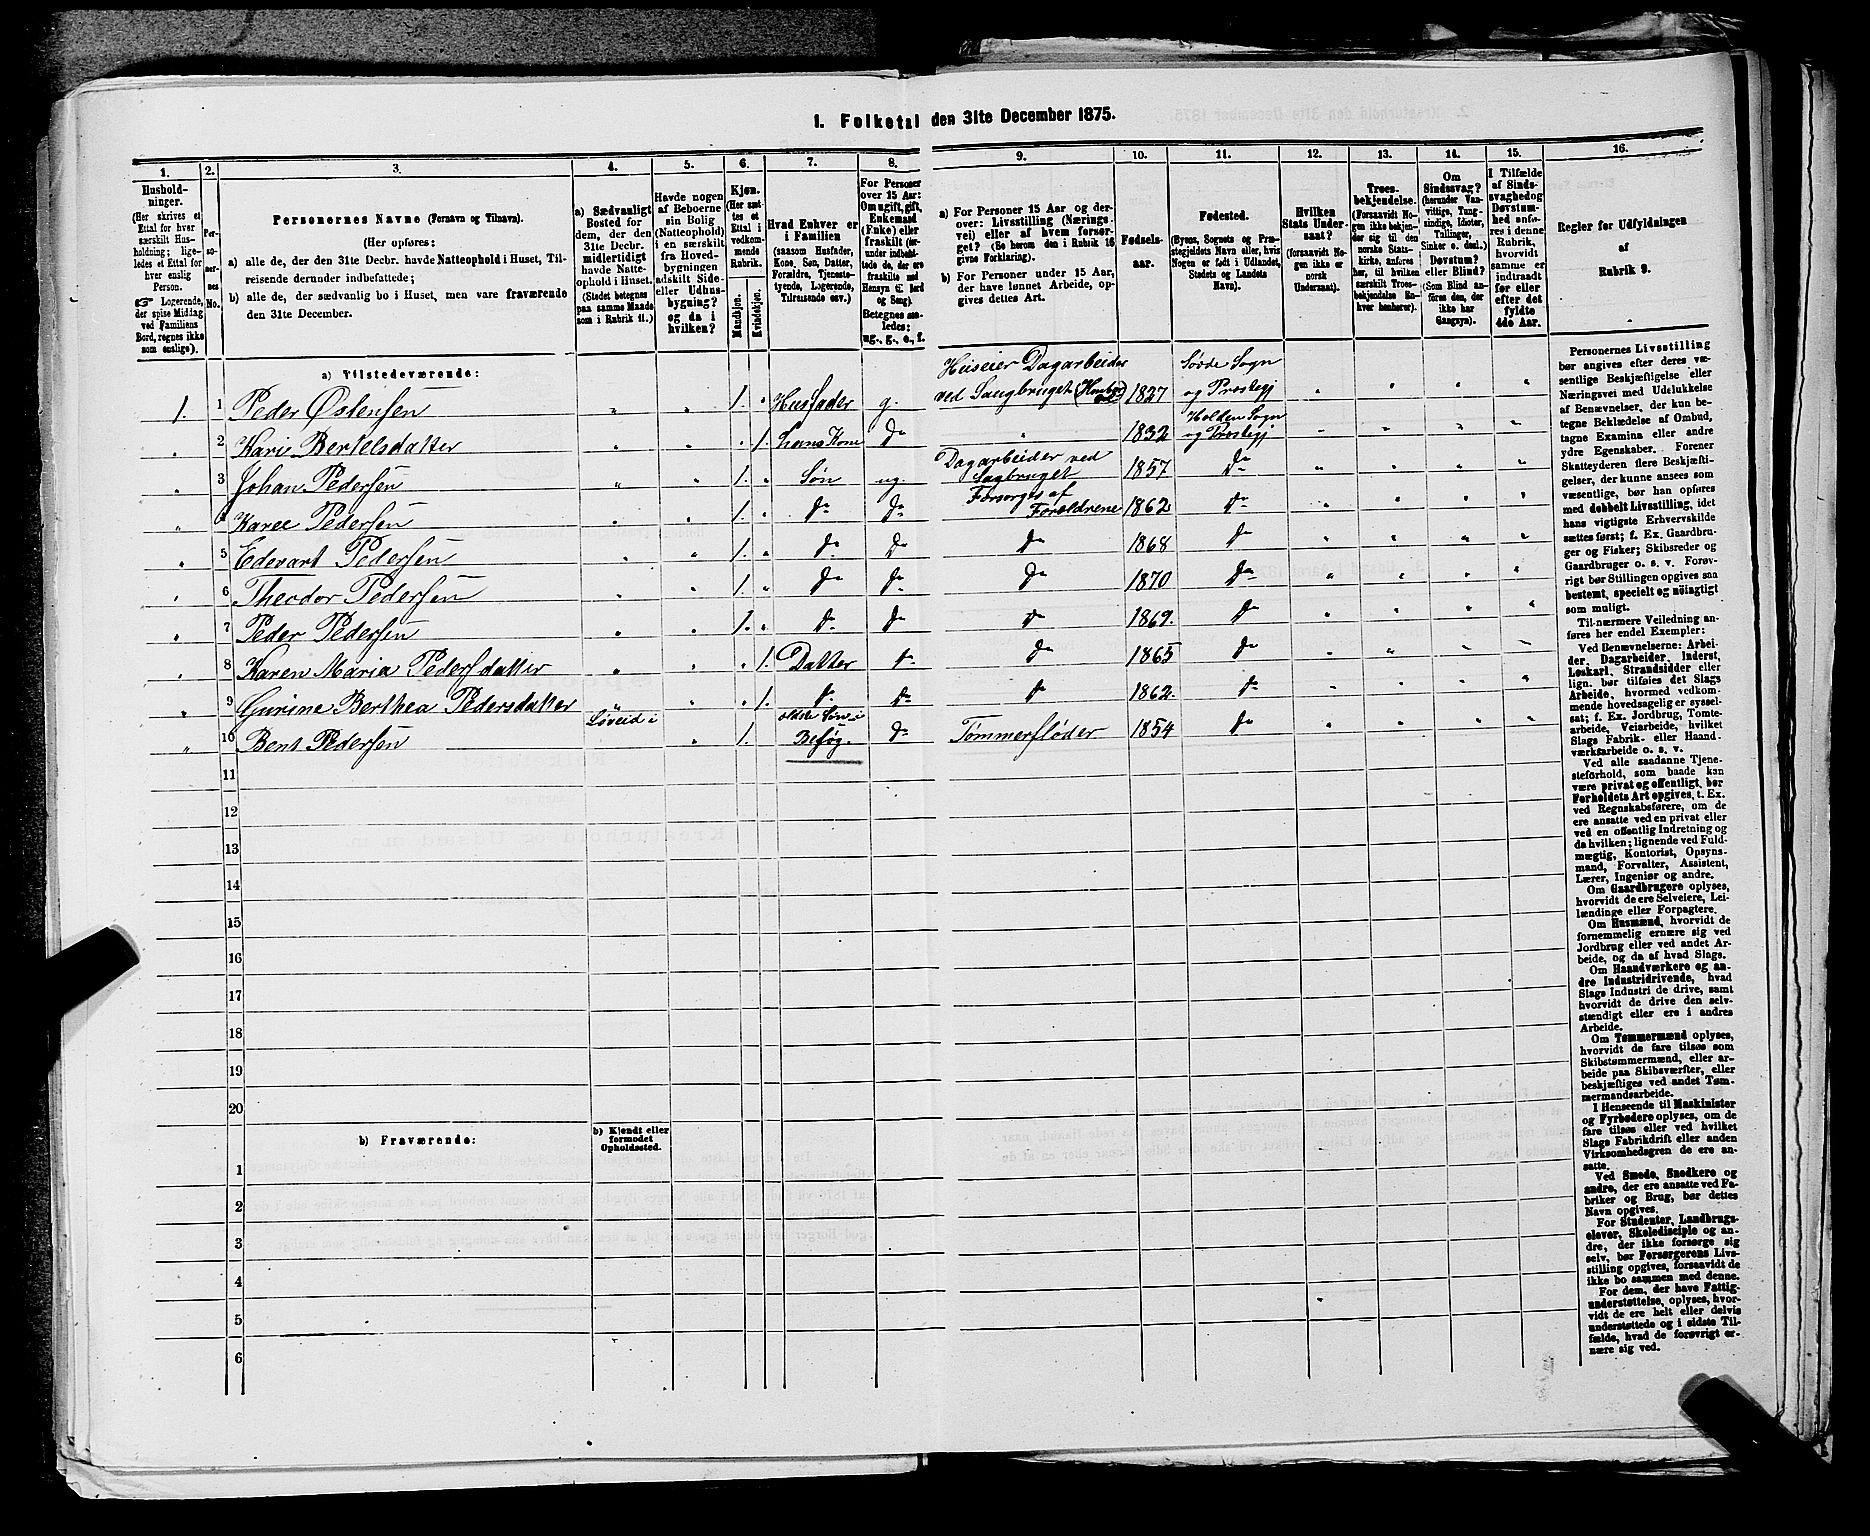 1. Folketal den 31te December 1875.
1.
Hushold-
ninger.
(Her skrives et
Ettal for hver
særskilt Hus-
holdning; lige-
ledes et Ettal for
hver enslig
Person.
☞ Logerende,
der spise Middag
ved Familiens
Bord, regnes ikke
som enslige).
2.
Per-
so-
ner-
nes
No.
3.
Personernes Navne (Fornavn og Tilnavn).
(Her opføres:
a) alle de, der den 31te Decbr. havde Natteophold i Huset, Til-
reisende derunder indbefattede;
b) alle de, der sædvanlig bo i Huset, men vare fraværende
den 31te December.
4.
a) Sædvanligt
Bosted for
dem, der den
31te Decbr.
midlertidigt
havde Natte-
ophold i Huset.
(Stedet betegnes
paa samme Maade
som i Rubrik 11.)
5.
Havde nogen
af Beboerne
sin Bolig
(Natteophold)
i en særskilt
fra Hoved-
bygningen
adskilt Side-
eller Udhus-
bygning?
og da i
hvilken?
6.
Kjøn.
(Her sæt-
tes et
Ettal i
vedkom-
mende
Rubrik.
Mandkjøn.
Kvindekjøn.
7.
Hvad Enhver er
i Familien
(saasom Husfader,
Kone, Søn, Datter,
Forældre, Tjeneste-
tyende, Logerende,
Tilreisende osv.)
8.
For Personer
over 15 Aar:
Om ugift, gift,
Enkemand
(Enke) eller
fraskilt
Betegnes saa-
ledes:
ug., g., e., f.
9.
a) For Personer 15 Aar og der-
over: Livsstilling (Nærings-
vei) eller af hvem forsør-
get? (Se herom den i Rubrik 16
givne Forklaring).
b) For Personer under 15 Aar,
der have lønnet Arbeide, op-
gives dettes Art.
10.
Fødsels-
aar.
11.
Fødested.
(Byens, Sognets og Præ-
stegjeldets Navn eller, hvis
Nogen er født i Udlandet,
Stedets og Landets
Navn).
12.
Hvilken
Stats Under-
saat?
(forsaavidt No-
gen ikke er
norsk
Undersaat).
13.
Troes-
bekjendelse.
(Forsaavidt No-
gen ikke bekjen-
der sig til den
norske Stats-
kirke, anføres
her, til hvilken
særskilt Troes-
bekjendelse En-
hver henhører).
14.
Om
Sindssvag?
(herunder Van-
vittige, Tung-
sindige, Idioter,
Tullinger,
Sinker o. desl.)
Døvstum?
eller Blind?
(Som Blind an-
føres den, der
ikke har
Gangsyn).
15.
I Tilfælde
af Sinds-
svaghed og
Døvstum-
hed anfø-
res i denne
Rubrik,
hvorvidt
samme er
indtraadt
før eller
efter det
fyldte
4de Aar.
16.
Regler for Udfyldningen
af
Rubrik 9.
a) Tilstedeværende:
1. 1 Peder Østensen " " 1. " Husfader g. Huseier Dagarbeider ved Saugbruget 1827 Sovde Sogn og Prestegj " " " "
" 2 Kari Bertelsdatter " " " 1. hans Kone Do " 1832 Holden Sogn og Prestegj " " " "
" 3 Johan Pedersen " " 1. " Søn ug. Dagarbeider ved Sagbruget 1857 Do " " " "
" 4 Karee Pedersen " " 1. " Do Do Forsørges af Forældrene 1862 Do " " " "
" 5 Edevart Pedersen " " 1. " Do Do Do 1868 Do " " " "
" 6 Theodor Pedersen " " 1. " Do Do Do 1870 Do " " " "
" 7 Peder Pedersen " " 1. " Do Do Do 1869. Do " " " "
" 8 Karen Maria Pedersdatter " " " 1. Datter Do Do 1865 Do " " " "
" 9 Gurine Berthea Pedersdatter " " " 1. Do Do Do 1862. Do " " " "
" 10 Bent Pedersen " 1. ældste Søn i Besøg. Do Tømmerfløder 1854 Do " " " "
11
12
13
14
15
16
17
18
19
20
b) Fraværende:
b) Kjendt eller
formodet
Opholdssted.
1
2
3
4
5
6
Personernes Livsstilling
bør angives efter deres væ-
sentlige Beskjæftigelse eller
Næringsvei med Udelukkelse
af Benævnelser, der kun be-
tegne Beklædelse af Ombud,
tagne Examina eller andre
ydre Egenskaber. Forener
Skatteyderen flere Beskjæfti-
gelser, der kunne ansees som
væsentlige, bør han opføres
med dobbelt Livsstilling, idet
hans vigtigste Erhvervskilde
sættes først; f. Ex. Gaardbru-
ger og Fisker; Skibsreder og
Gaardbruger o. s. v. Forøv-
rigt bør Stillingen opgives saa
bestemt, specielt og nöiagtigt
som muligt.
Til nærmere Veiledning an-
føres her endel Exempler:
Ved Benævnelserne: Arbei-
der, Dagarbeider, Inderst,
Løskarl, Strandsidder eller
lign. bør tilføies det Slags
Arbeide, hvormed vedkom-
mende hovedsagelig er syssel-
sat; f. Ex. Jordbrug, Tomte-
arbeide, Veiarbeide, hvilket
Slags Fabrik- eller Haand-
værksarbeide o. s. v.
Ved alle saadanne Tjene-
steforhold, som baade kan
være privat og offentligt, bør
Forholdets Art opgives, t. Ex.
ved Regnskabsførere, om de
ere ansatte ved en privat eller
ved en offentlig Indretning og
da hvilken; lignende ved Fuld-
mægtig, Kontorist, Opsyns-
mand, Forvalter, Assistent,
Lærer, Ingeniør og andre.
Om Gaardbrugere oplyses,
hvorvidt de ere Selveiere, Lei-
lændinge eller Forpagtere.
Om Husmænd, hvorvidt de
fornemmelig ernære sig ved
Jordbrug eller ved andet Ar-
beide, og da af hvad Slags.
Om Haandværkere og an-
dre Industridrivende, hvad
Slags Industri de drive, samt
hvorvidt de drive den selv-
stændigt eller ere i andres
Arbeide.
Om Tømmermænd oplyses,
hvorvidt de fare tilsøs som
Skibstømmermænd, eller ar-
beide paa Skibsværfter, eller
beskjæftiges ved andet Tøm-
mermandsarbeide.
I Henseende til Maskinister
og Fyrbødere oplyses, om de
fare tilsøs eller ved hvilket
Slags Fabrikdrift eller anden
Virksomhedsgren de ere an-
satte.
Ved Smede, Snedkere og
andre, der ere ansatte ved Fa-
briker og Brug, bør dettes
Navn opgives.
For Studenter, Landbrugs-
elever, Skoledisciple og an-
dre, der ikke forsørge sig
selv, bør Forsørgerens Livs-
stilling opgives, forsaavidt de
ikke bo sammen med denne.
For dem, der have Fattig-
understøttelse, oplyses, hvor-
vidt de ere helt eller delvis
understøttede og i sidste Til-
fælde, hvad de forøvrigt er-
nære sig ved.